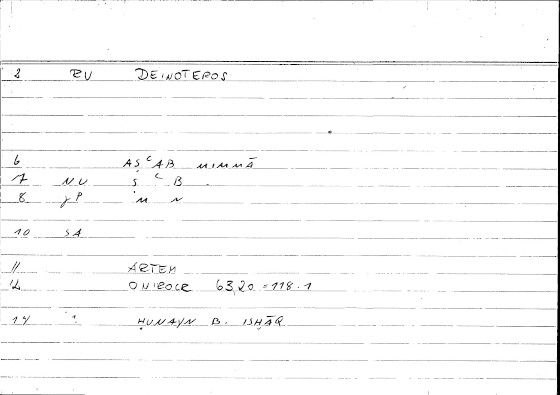 2 RU DEINOTEROS
6 AṢ ͨAB MIMMĀ
7 NU Ṣ ͨ B
8 JP M N
10 SA
11 ARTEM
12 ONIROCR 63,20 = 118.1
14 ḤUNAYN B. ISḤĀQ